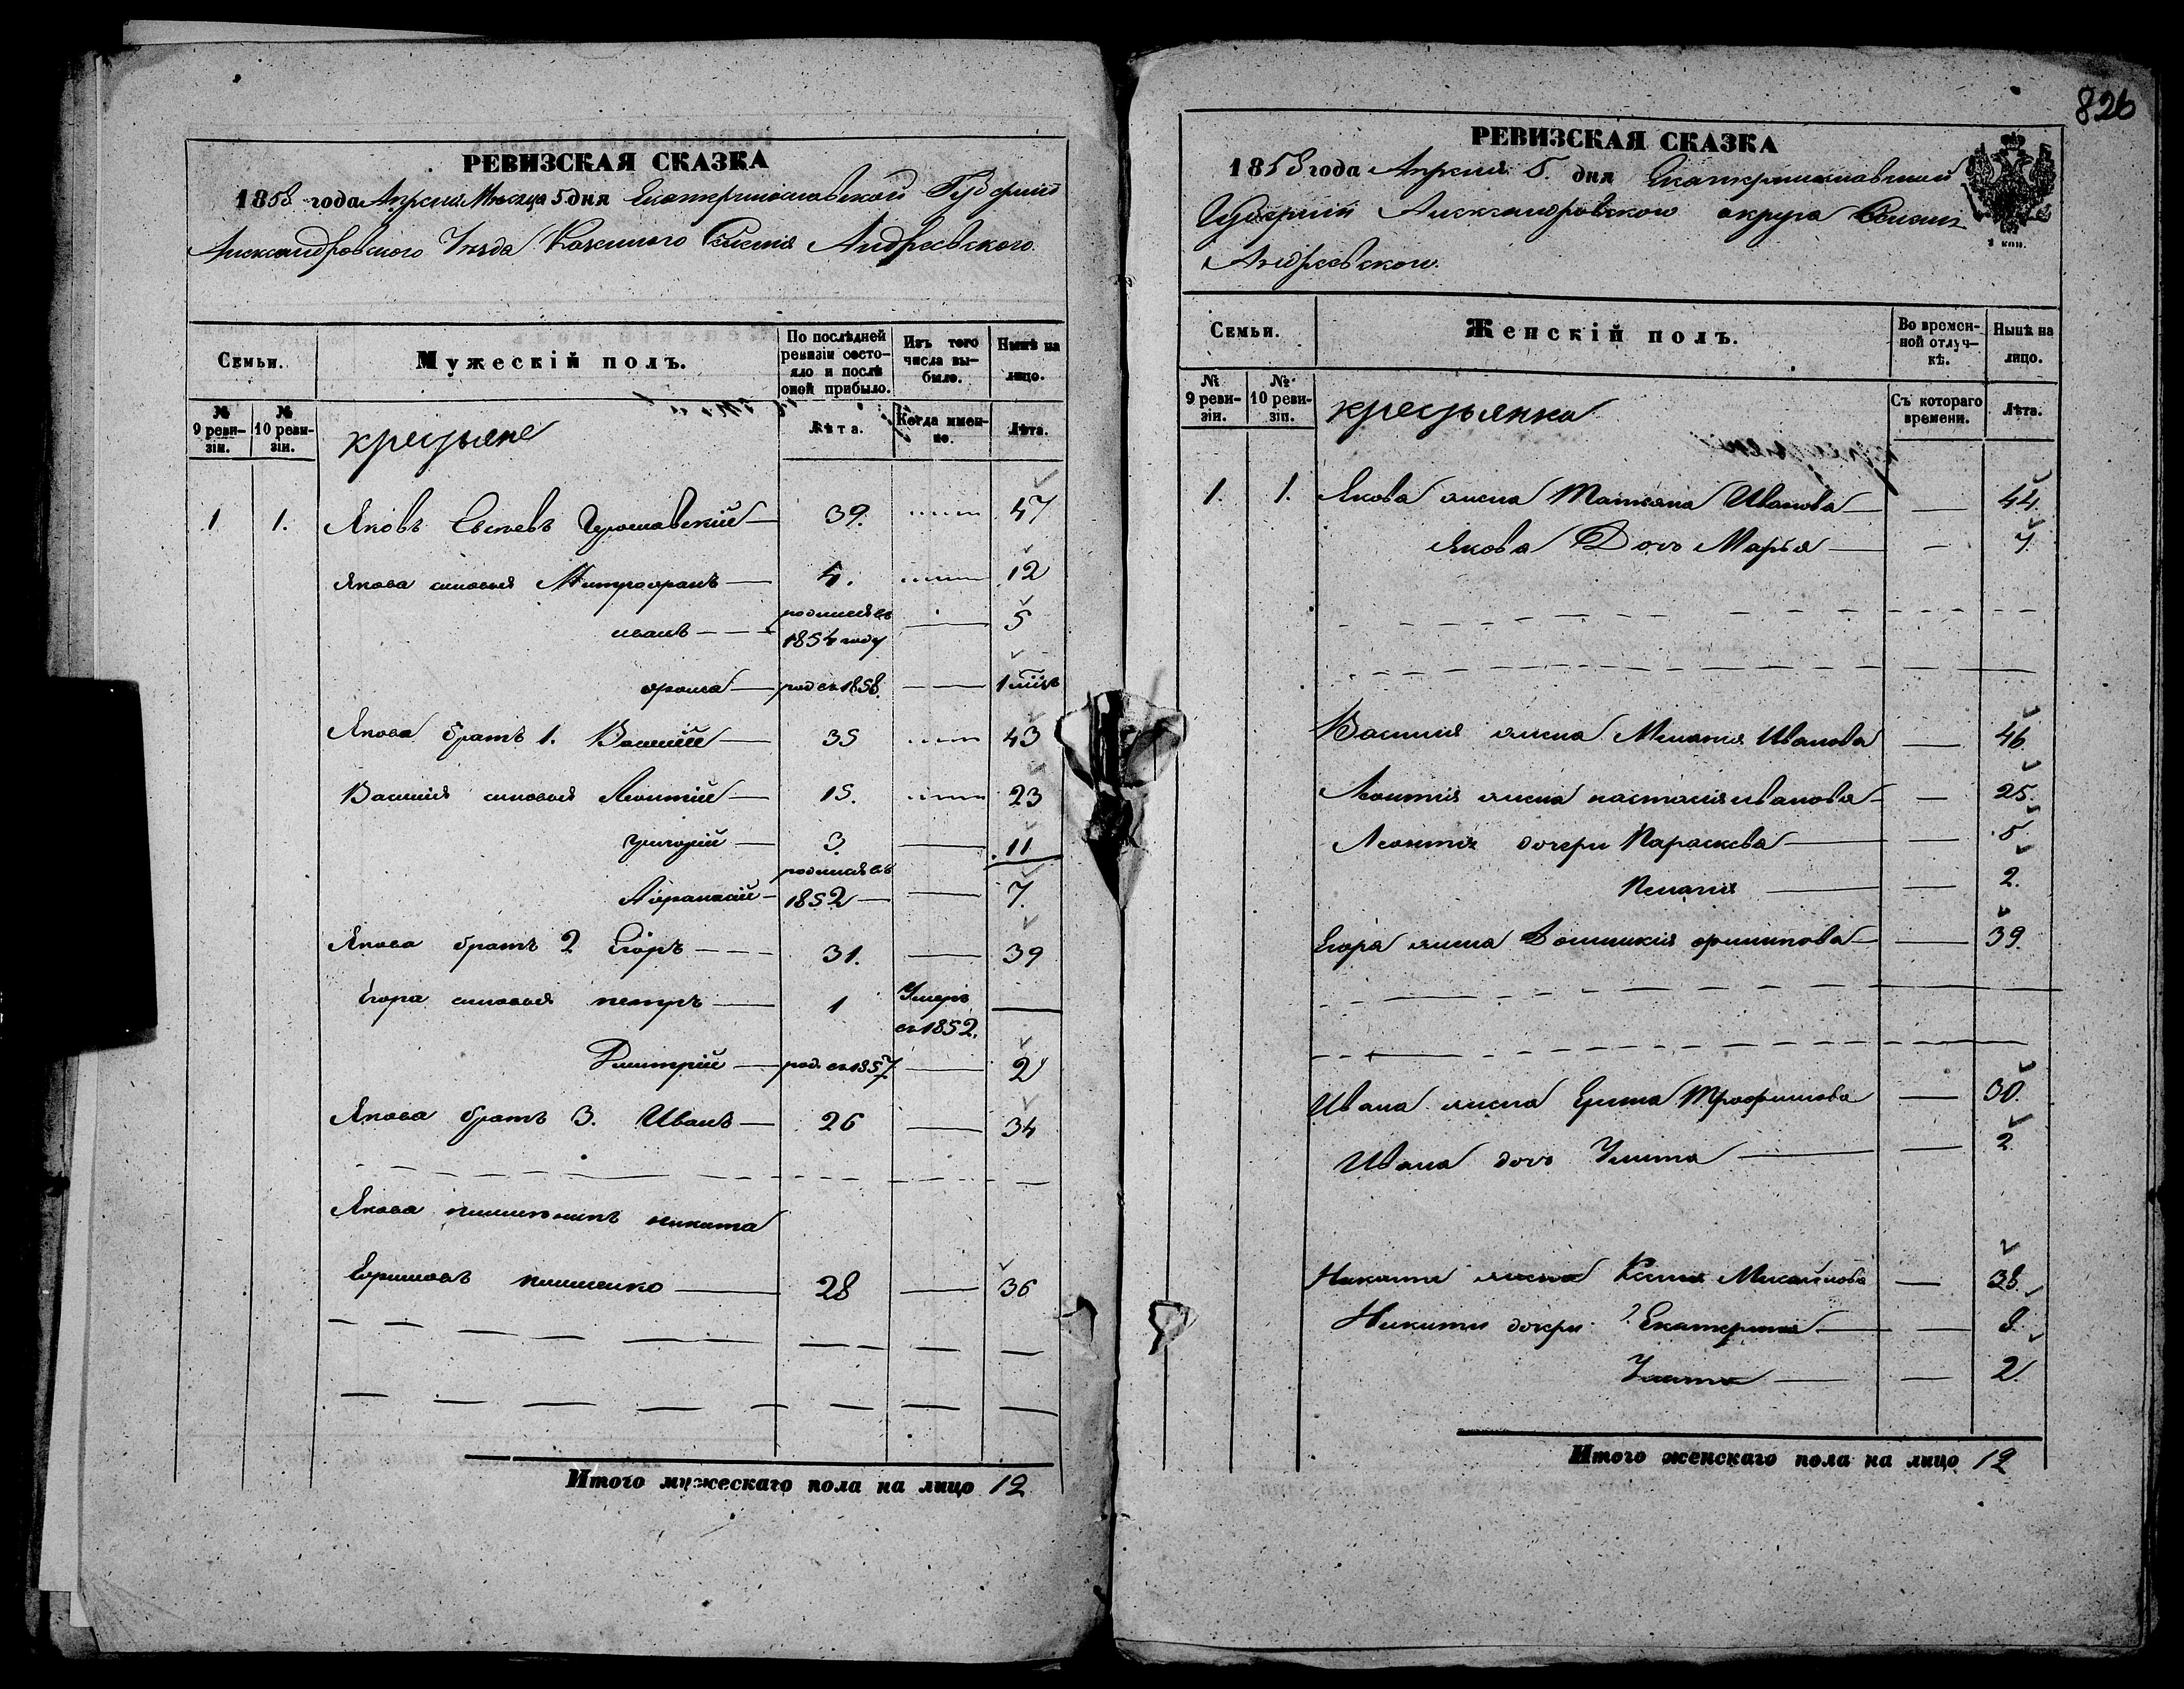 826
РЕВИЗСКАЯ СКАЗКА
1858 года Апреля Мѣсяца 5 дня Екатеринославской Губернии
Александровского Уезда Казенного Селения Андреевского.
Семьи.
Мужескій полъ.
По послѣдней ревизіи состояло и послѣ оной прибыло.
Изъ того числа выбыло.
Нынѣ на лицо.
№ 9 ревизіи.
№ 10 ревизіи.
крестьяне
Лѣта.
Когда именно.
Лѣта.
1 1. Яковъ 39. 47
Якова сыновья Митрофанъ 4. 12
иванъ родился въ 1854 году 5
фома род въ 1858. 1
Якова братъ 1. Василій 35 43
Василия сыновья Леонтий 15. 23
григорий 3. 11
Афанасий родился въ 1852 7.
Якова братъ 2 Егоръ 31. 39
Егора сыновья петръ 1 Умеръ въ 1852.
Дмитрий род. въ 1857 2
Якова братъ 3. Иванъ 26 34
Якова никита
Ефимовъ 28 36
Итого мужескаго пола на лицо 12
РЕВИЗСКАЯ СКАЗКА
1858 года Апреля 5. дня Екатеринославской
Губернии Александровского округа Селения
Андреевского.
Семьи.
Женскій полъ.
Во временной отлучкѣ.
Нынѣ на лицо.
№ 9 ревизіи.
№ 10 ревизіи.
крестьянка
Съ котораго времени.
Лѣта.
1. 1. Якова жена Татьяна Иванова 44.
Якова Дочь Марья
Василия жена Мелания Иванова 46.
Леонтия жена настасия иванова 25.
Леонтия дочери Параскева 5
Пелагия 2.
Егора жена Домникия филипова 39.
Ивана жена Трофимова 30.
Ивана дочь Улита 2
Никиты жена Ксения Михайлова 38.
Никиты дочери Екатерина
Улита 2.
Итого женскаго пола на лицо 12